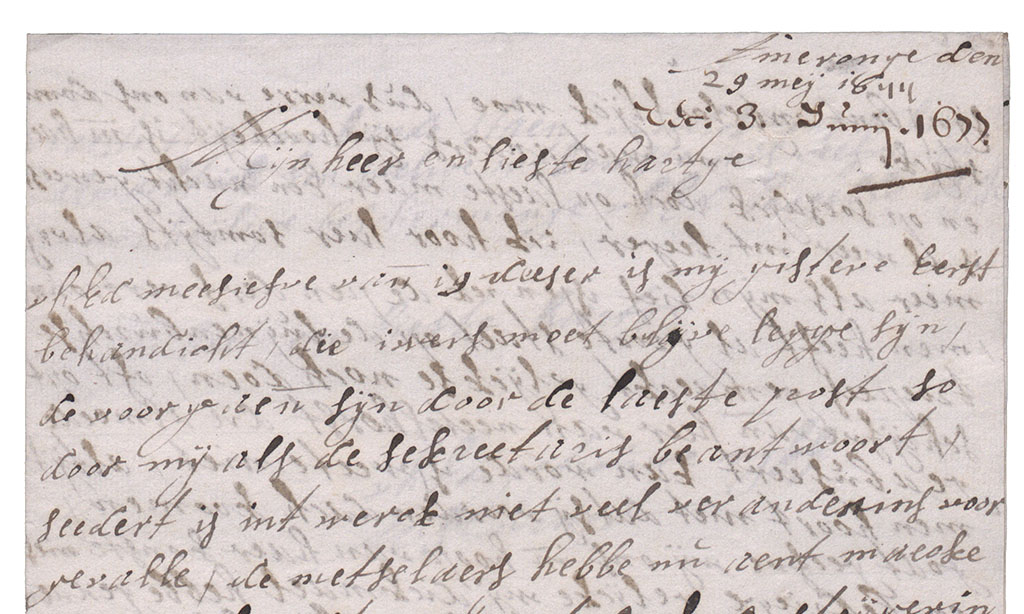 Ameronge den
29 meij 1677
Rec: 3. Junij. 1677.
Mijn heer en lieste hartge
uhEd meesiefve van 19 deeser is mij gistere eerst
behandicht, die iwers moet blijve legge sijn,
de voorgaen sijn door de laeste post so
door mij als de sekreetaris beantwoort,
seedert is int werck niet veel veranderins voor
gevalle, de metselaers hebbe nu aent maecke